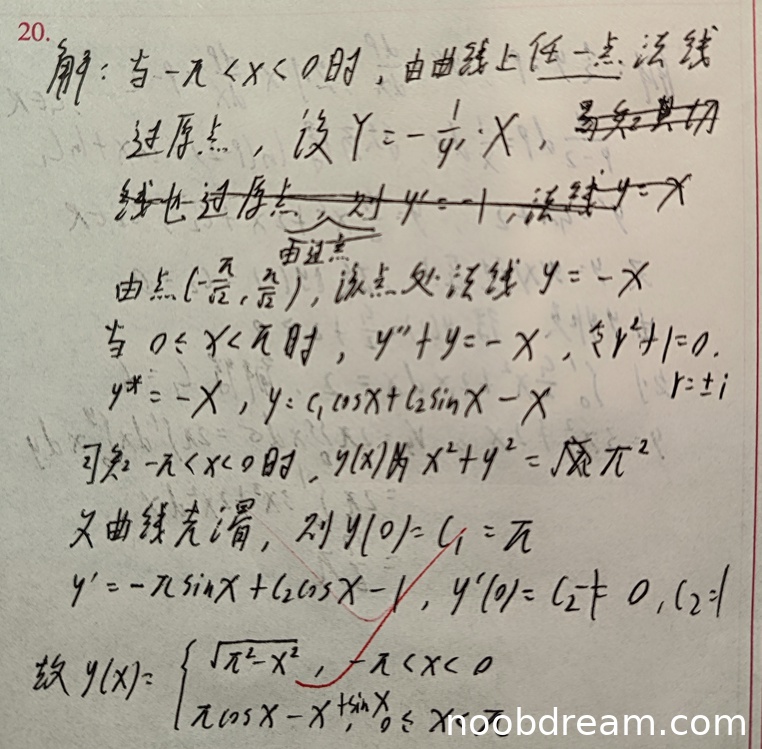 20.
解：当 -π < x < 0时，由曲线上任一点法线
过原点，设 Y = -1/y'·X，易知其切
线也过原点，则 y' = -1，法线 y = x
由过点
由点(-π/√2, π/√2)，该点处法线 y = -x
当 0 ≤ x < π时，y'' + y = -x，令r²+1=0.
r=±i
y* = -x，y = C₁cosx + C₂sinx - x
可知 -π<x<0时，y(x)为 x²+y² = π²
又曲线光滑，则 y(0) = C₁ = π
y' = -πsinx + C₂cosx - 1，y'(0) = C₂-1 = 0，C₂=1
故 y(x) = { √(π²-x²)，-π < x < 0
πcosx - x +sinx，0 ≤ x < π
noobdream.com